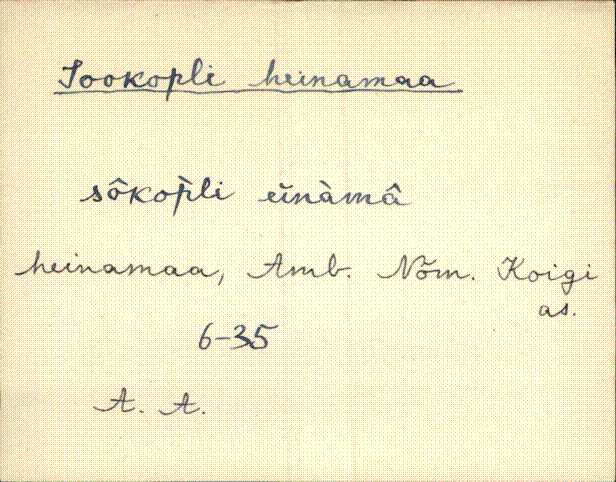 Sookopli heinamaa
sôkop̀li eìnàmâ
heinamaa, Amb. Nõm. Koigi
as.
6-35
A. A.